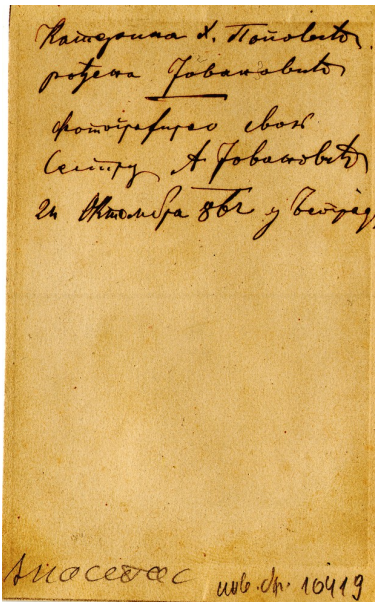 Катарина Х. Поповића
рођена Јовановића
фотографирао своју
Сестру А Јовановић
24 Октомбра 862 у Београд
инв. бр. 10419